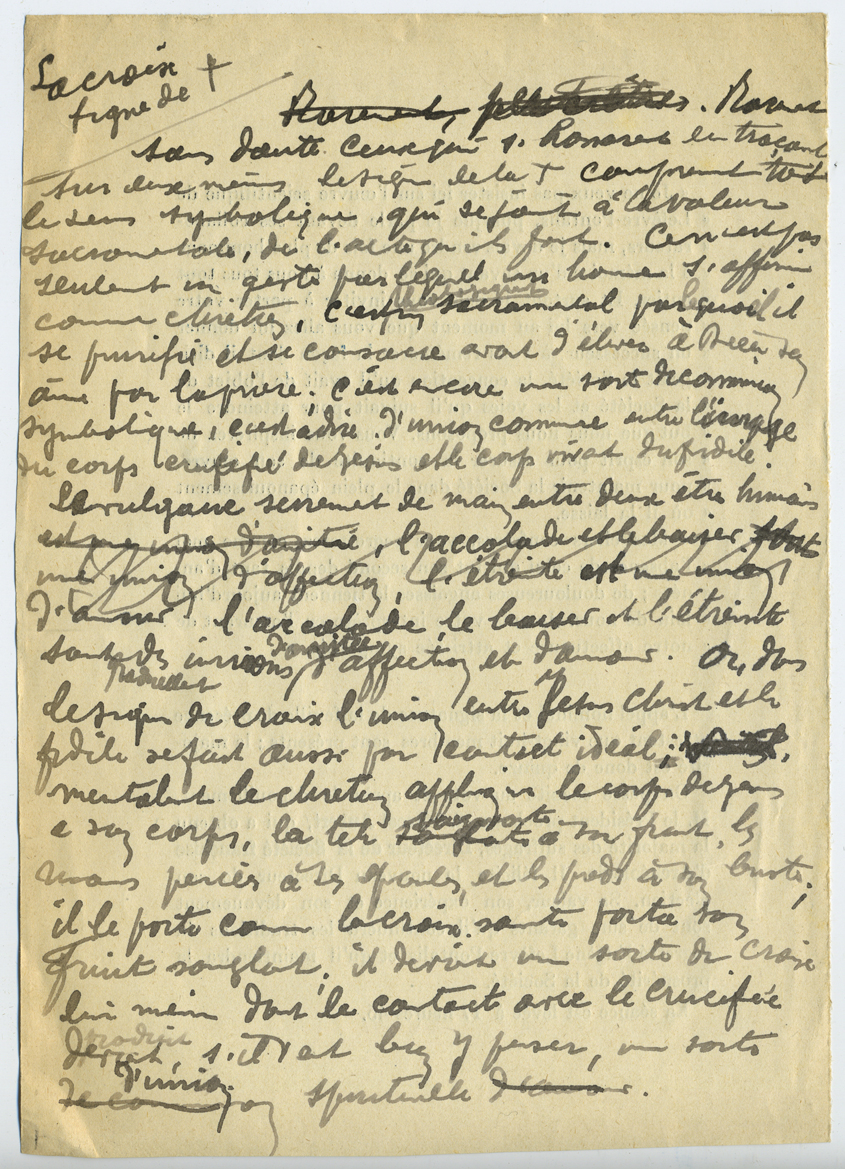 La croix
signe de †
Rarement, . Rares
sans doute ceux qui s. honorent en traçant
sur eux mêmes le signe de la † comprennent tout
le sens symbolique, qui se joint à la valeur
sacramentale, de l'acte qu'ils font. Ce n'est pas
seulement un geste par lequel un homme s'affirme
comme chrétien, c'est un sacramental par quoi il
se purifie et se consacre avant d'élever à Dieu son
âme par la prière. C'est encore une sorte de communion
symbolique, c'est à dire d'union commune entre l'image
du corps crucifié de Jésus et le corps vivant du fidèle.
Le vulgaire serrement de main entre deux être humains
est une union d'amitié, l'accolade et le baiser sont
une union d'affection, l'étreinte est une union
d'amour. l'accolade, le baiser et l'étreinte
sont des unions d'amitié, d'affection et d'amour. Or, dans
le signe de croix l'union entre Jésus Christ et le
fidèle se fait aussi par contact idéal;
mentalement le chrétien applique le corps de Jésus
a son corps, la tête sanglante à son front, les
mains percées à ses épaules, et les pieds à son buste;
il le porte comme la croix sainte porta son
fruit sanglant, il devient une sorte de croix
lui même dont le contact avec le crucifié
produit
devient, s'il veut bien y penser, une sorte
d'union
de communion spirituelle d'amour.